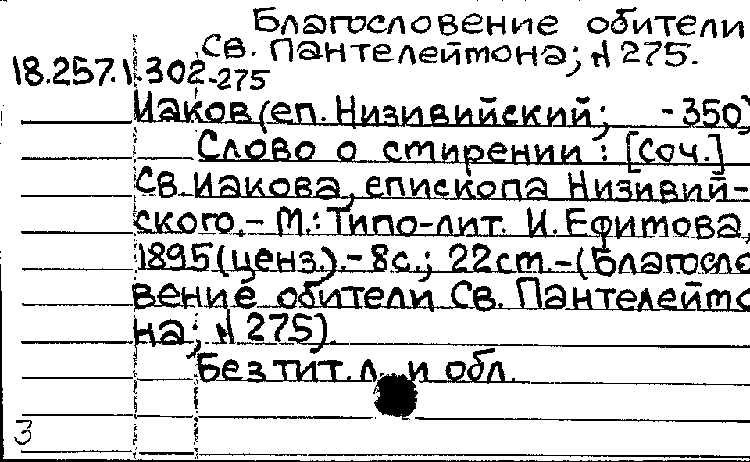 Благословение обители
св. Пантелеймона; № 275.
18.257.1.302-275
Иаков (еп. Низивийский; -350)
Слово о смирении : [Соч.]
Св. Иакова, епископа Низивий-
ского. – М.: Типо-лит. И. Ефимова,
1895 (ценз.). – 8с.; 22см. – (Благосло
вение обители Св. Пантелеймо
на; № 275).
Без тит. л. и обл.
3